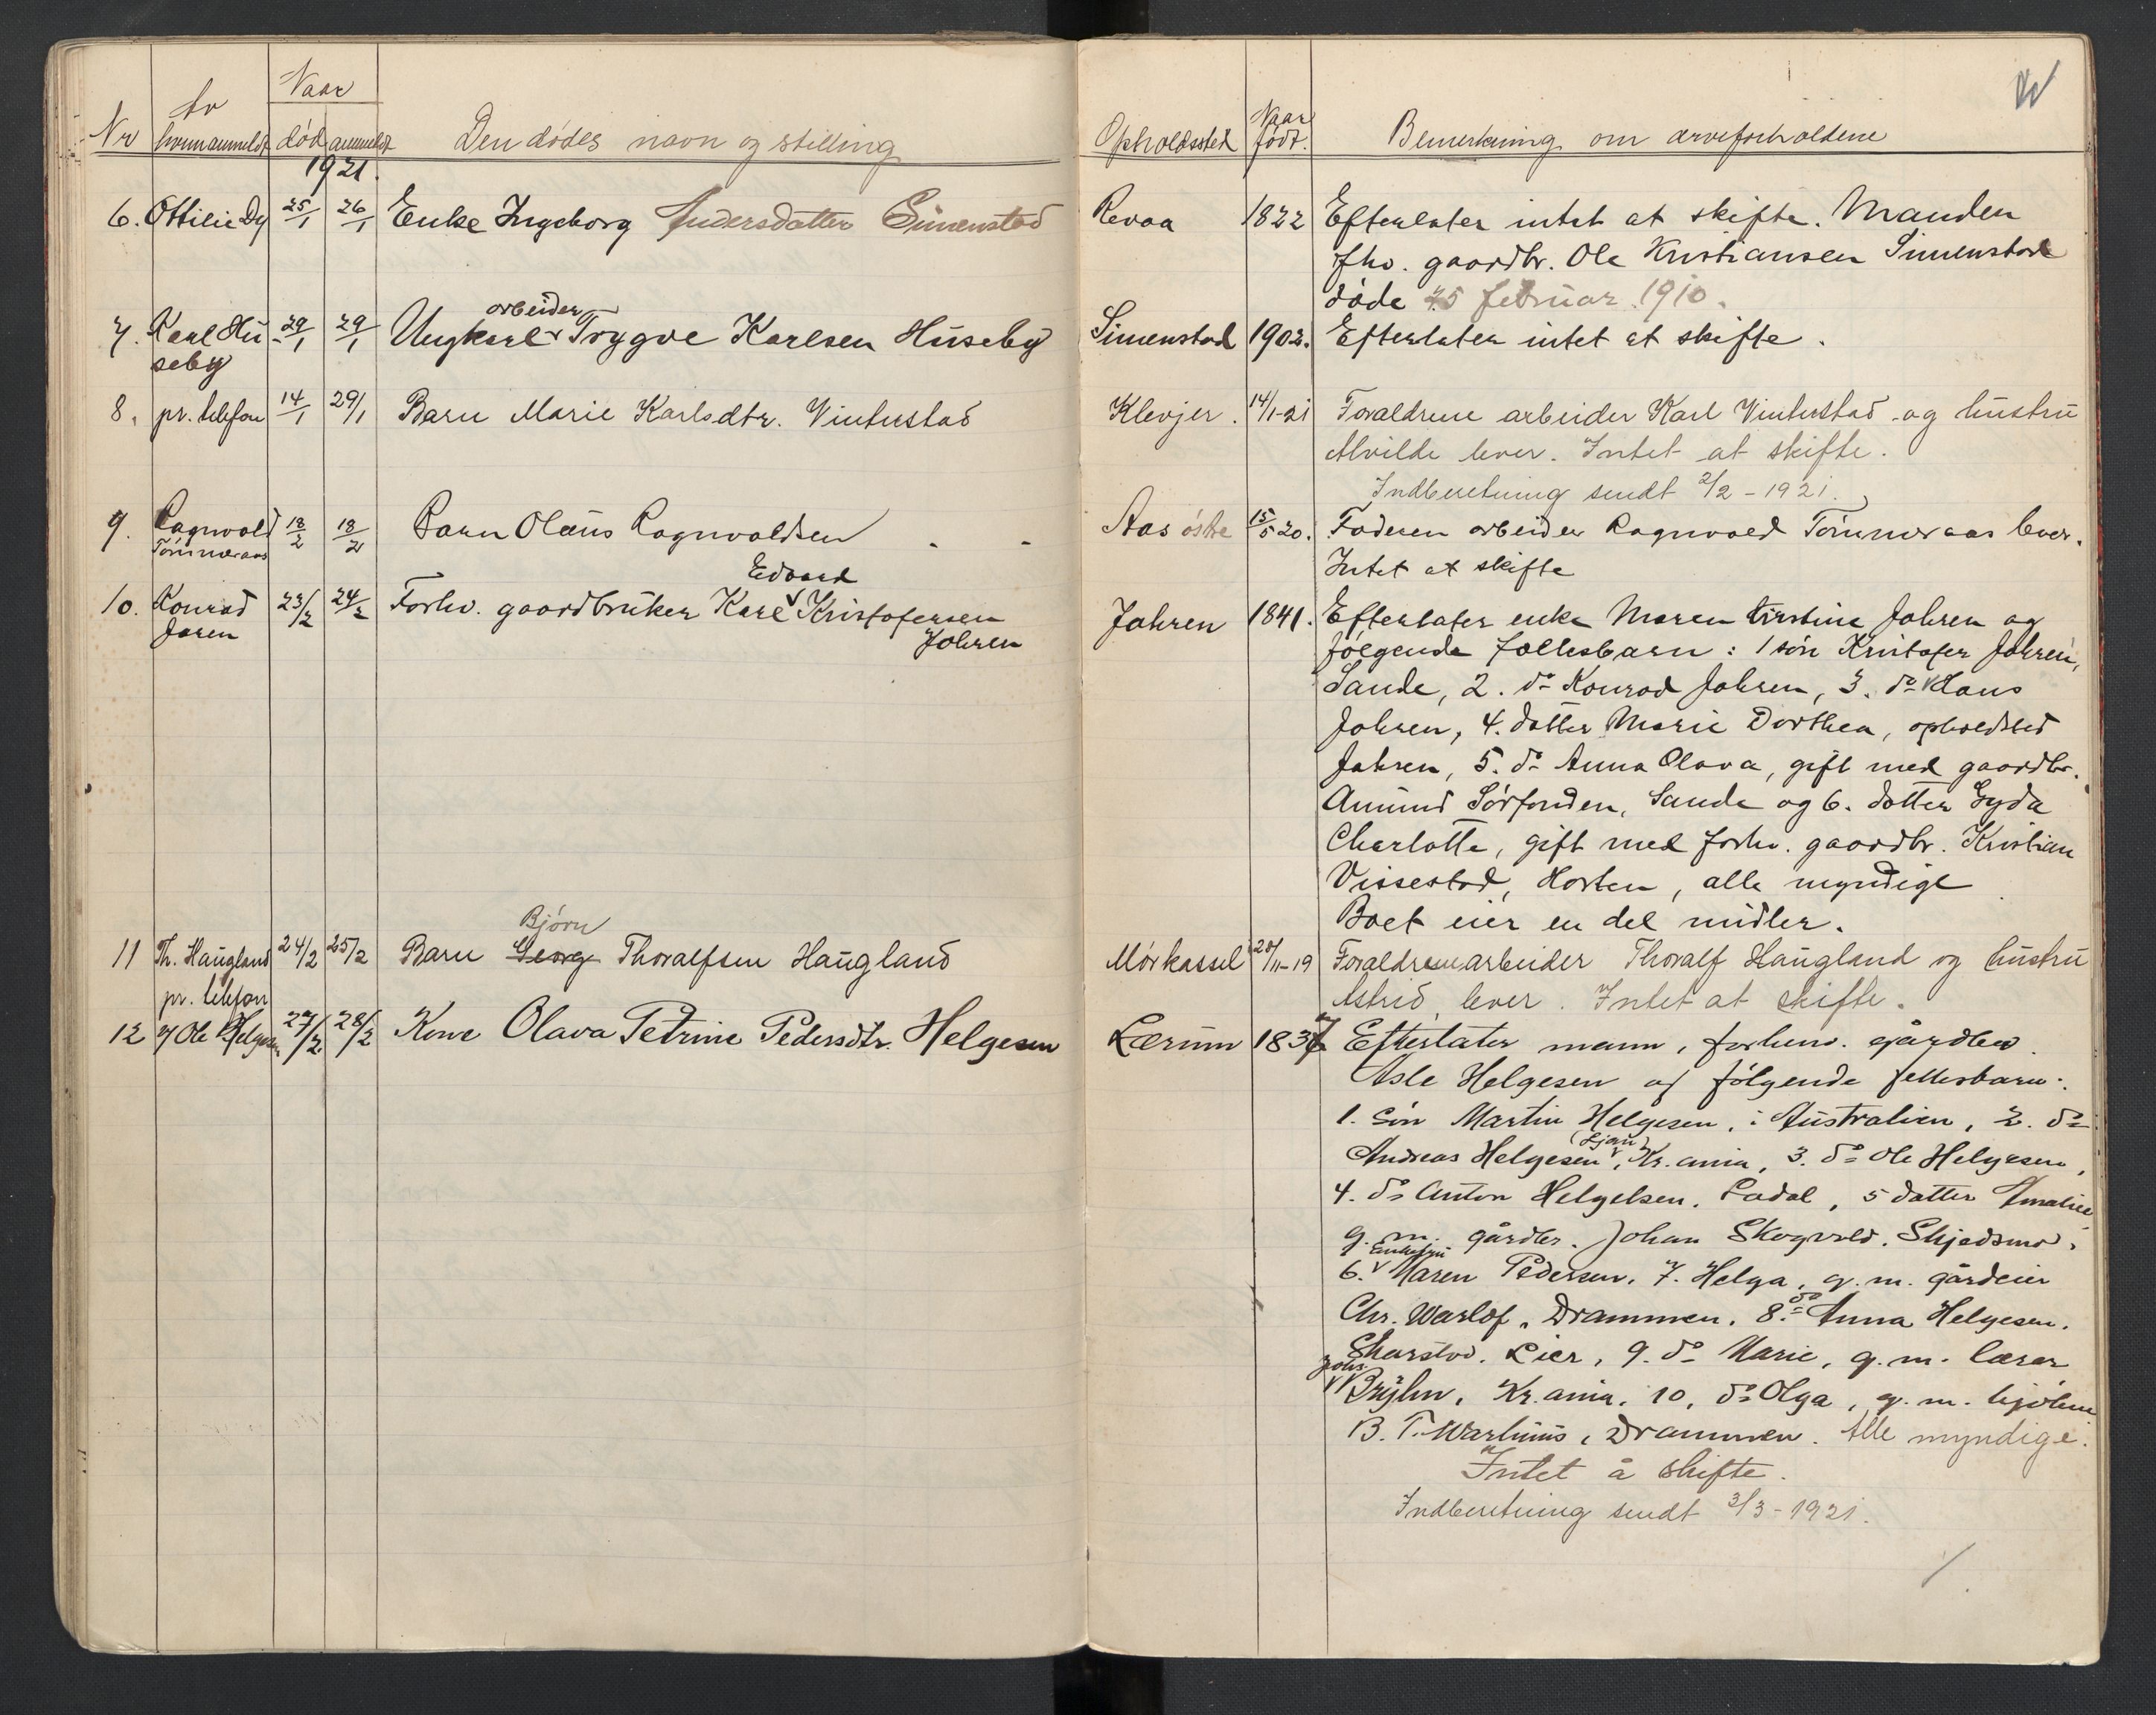 Nr
Av hvem anmeldt
Naar
død
anmeldt
Den dødes navn og stilling
1921.
6. Ottilie Dy 25/1 26/1 Enke Ingeborg Andersdatter Simenstad
7. Karl Hu 29/1 29/1 Ungkarl arbeider Trygve Karlsen Huseby
seby
8. pr. telefon 14/1 29/1 Barn Marie Karlsdtr. Vinterstad
9. Ragnvald 18/2 18/2 Barn Olaus Ragnvaldsen
Tømmeraas
10. Konrad 23/2 24/2 Forhv. gaardbruker Karl Edvard Kristofersen
Jaren Jahren
11 Th. Haugland 24/2 25/2 Barn Georg Bjørn Thoralfsen Haugland
pr. telefon
12 Ole Helgesen 27/2 28/2 Kone Olava Petrine Pedersdtr. Helgesen
Opholdssted
Naar født.
Bemerkning om arveforholdene
Revaa 1822 Efterlater intet at skifte. Manden
fhv. gaardbr. Ole Kristiansen Simenstad
døde 25 februar 1910.
Simenstad 1902. Efterlater intet at skifte.
Klevjer. 14/1-21 Foraldrene arbeider Karl Vinterstad og hustru
Alvilde lever. Intet at skifte.
Indberetning sendt 2/2-1921.
Aas østre 15/5 20. Faderen arbeider Ragnvald Tømmeraas lever.
Intet at skifte
Jahren 1841. Efterlater enke Maren Kirstine Jahren og
følgende fællesbarn: 1 søn Kristofer Jahren,
Sande, 2. do Konrad Jahren, 3. do Hans
Jahren, 4. datter Marie Dorthea, opholdsted
Jahren, 5. do Anna Olava, gift med gaardbr.
Amund Sørfonden, Sande og 6. datter Gyda
Charlotte, gift med forhv. gaardbr. Kristian
Vissestad, Horten, alle myndige
Boet eier en del midler.
Mørkassel 20/11-19 Foraldrene arbeider Thoralf Haugland og hustru
Astrid, lever. Intet at skifte.
Lærum 1837 Efterlater mann, forhenv. gårdbr.
Asle Helgesen og følgende fellesbarn:
1. søn Martin Helgesen, i Australien, 2. do
Andreas Helgesen (Ljan), Kr.ania, 3. do Ole Helgesen,
4. do Anton Helgelsen, Ladal, 5 datter Amalie,
g. m. gårdbr. Johan Skogvold, Skjedsmo,
6. Enkefru Maren Pedersen, 7. Helga, g. m. gårdeier
Chr. Warlof, Drammen, 8. do Anna Helgesen,
Skarstad, Lier, 9. do Marie, g. m. lærer
Johs. Bryhn, Kr.ania, 10, do Olga, g. m.
B. T. Warhuus, Drammen. Alle myndige.
Intet å skifte.
Indberetning sendt 3/3-1921.